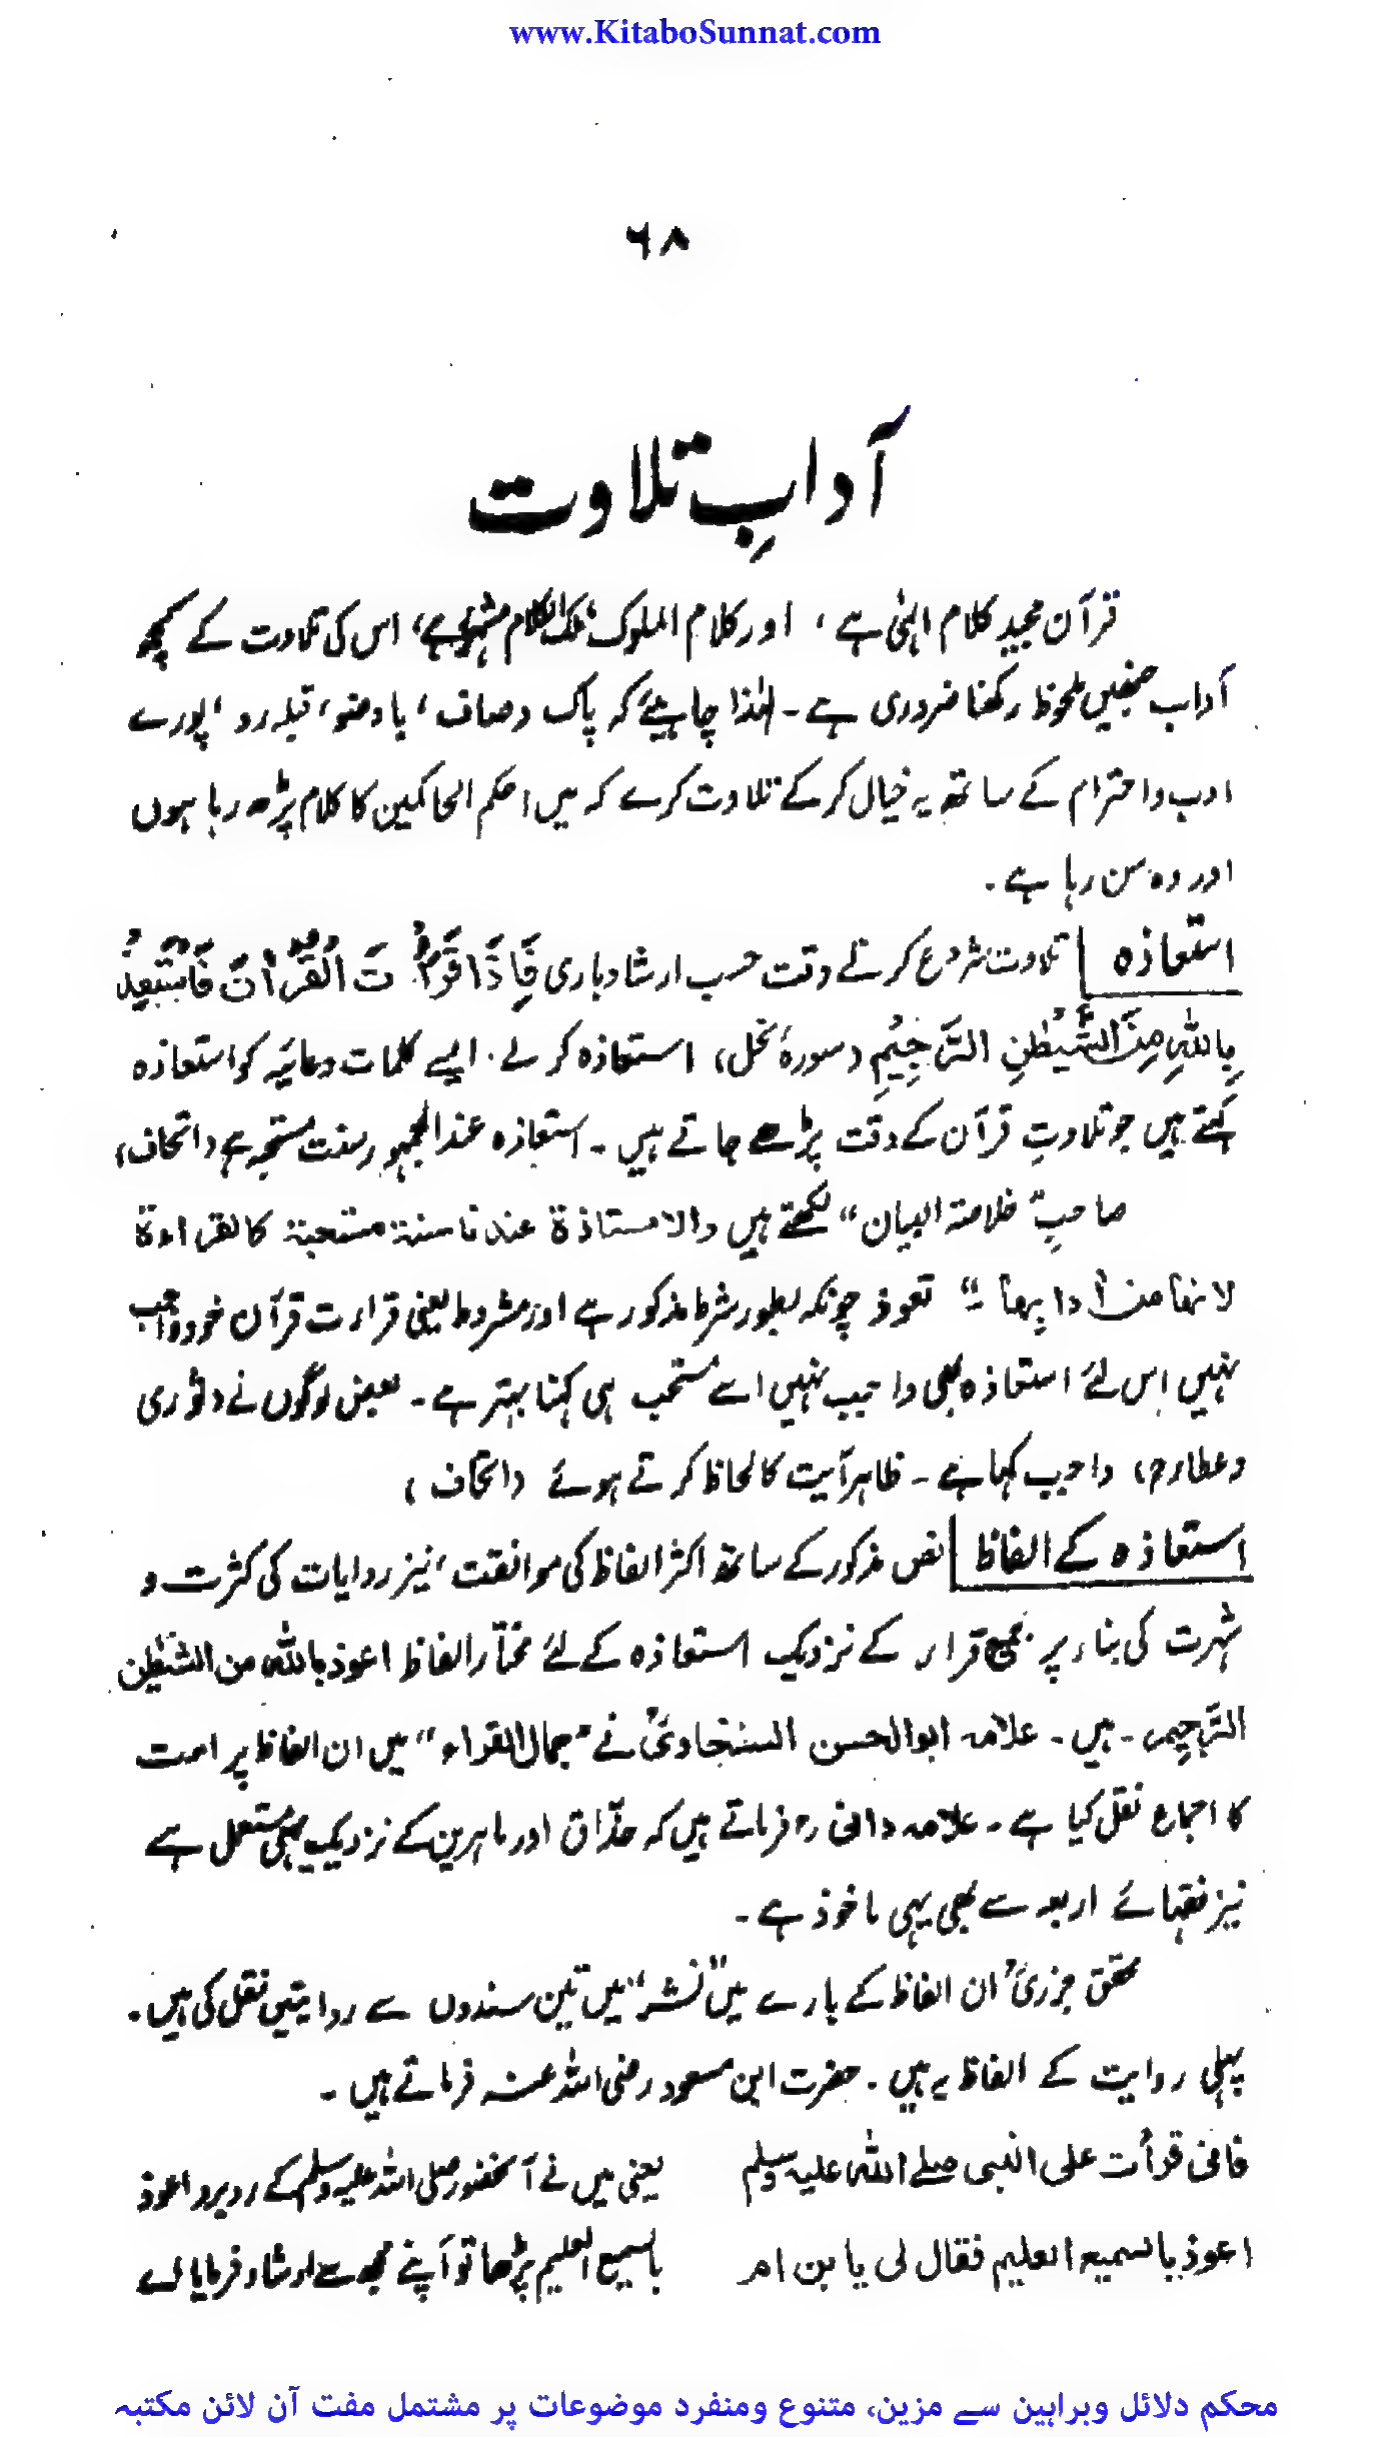 www.KitaboSunnat.com
۶۸
آدابِ تلاوت
قرآن مجید کلام الہٰی ہے، اور کلام الملوک ملک الکلام مشہور ہے، اس کی تلاوت کے کچھ
آداب جنھیں ملحوظ رکھنا ضروری ہے۔ لہٰذا چاہیئے کہ پاک وصاف، باوضو، قبلہ رو، پورے
ادب واحترام کے ساتھ یہ خیال کرکے تلاوت کرے کہ میں احکم الحاکمین کا کلام پڑھ رہا ہوں
اور وہ سن رہا ہے۔
استعاذہ | تلاوت شروع کرتے وقت حسب ارشاد باری فَاِذَا قَرَاْتَ الْقُرْاٰنَ فَاسْتَعِذْ
بِاللّٰهِ مِنَ الشَّيْطٰنِ الرَّجِيْمِ (سورۂ نحل) استعاذہ کرلے۔ ایسے کلمات دعائیہ کو استعاذہ
کہتے ہیں جو تلاوتِ قرآن کے وقت پڑھے جاتے ہیں۔ استعاذہ عند الجمہور سنت مستحبہ ہے (اتحاف)
صاحبِ "خلاصۃ البیان" لکھتے ہیں والاستاذة عندنا سنة مستحبة كالقراءة
لانها من أدابها۔" تعوذ چونکہ بطور شرط مذکور ہے اور مشروط یعنی قراءت قرآن خود واجب
نہیں اس لئے استعاذہ بھی واجب نہیں اسے مستحب ہی کہنا بہتر ہے۔ بعض لوگوں نے (ثوری
وعطاءؒ) واجب کہا ہے۔ ظاہر آیت کا لحاظ کرتے ہوئے (اتحاف)
استعاذہ کے الفاظ | نص مذکور کے ساتھ اکثر الفاظ کی موافقت، نیز روایات کی کثرت و
شہرت کی بناء پر جمیع قراء کے نزدیک استعاذہ کے لئے مختار الفاظ اعوذ باللّٰه من الشيطٰن
الرَّجِيم۔ ہیں۔ علامہ ابوالحسن السخاویؒ نے "جمال القراء" میں ان الفاظ پر امت
کا اجماع نقل کیا ہے۔ علامہ دانی رح فرماتے ہیں کہ حذّاق اور ماہرین کے نزدیک یہی مستعمل ہے
نیز فقہائے اربعہ سے بھی یہی ماخوذ ہے۔
محقق جزریؒ ان الفاظ کے بارے میں "نشر" میں تین سندوں سے روایتیں نقل کی ہیں۔
پہلی روایت کے الفاظ یہ ہیں۔ حضرت ابن مسعود رضی اللہ عنہ فرماتے ہیں۔
فانی قرأت علی النبی صلے اللّٰه علیہ وسلم
اعوذ بالسميع العليم فقال لی یا بن ام
یعنی میں نے آنحضور صلی اللہ علیہ وسلم کے روبرو اعوذ
بالسمیع العلیم پڑھا تو آپنے مجھ سے ارشاد فرمایا اے
محکم دلائل وبراہین سے مزین، متنوع ومنفرد موضوعات پر مشتمل مفت آن لائن مکتبہ